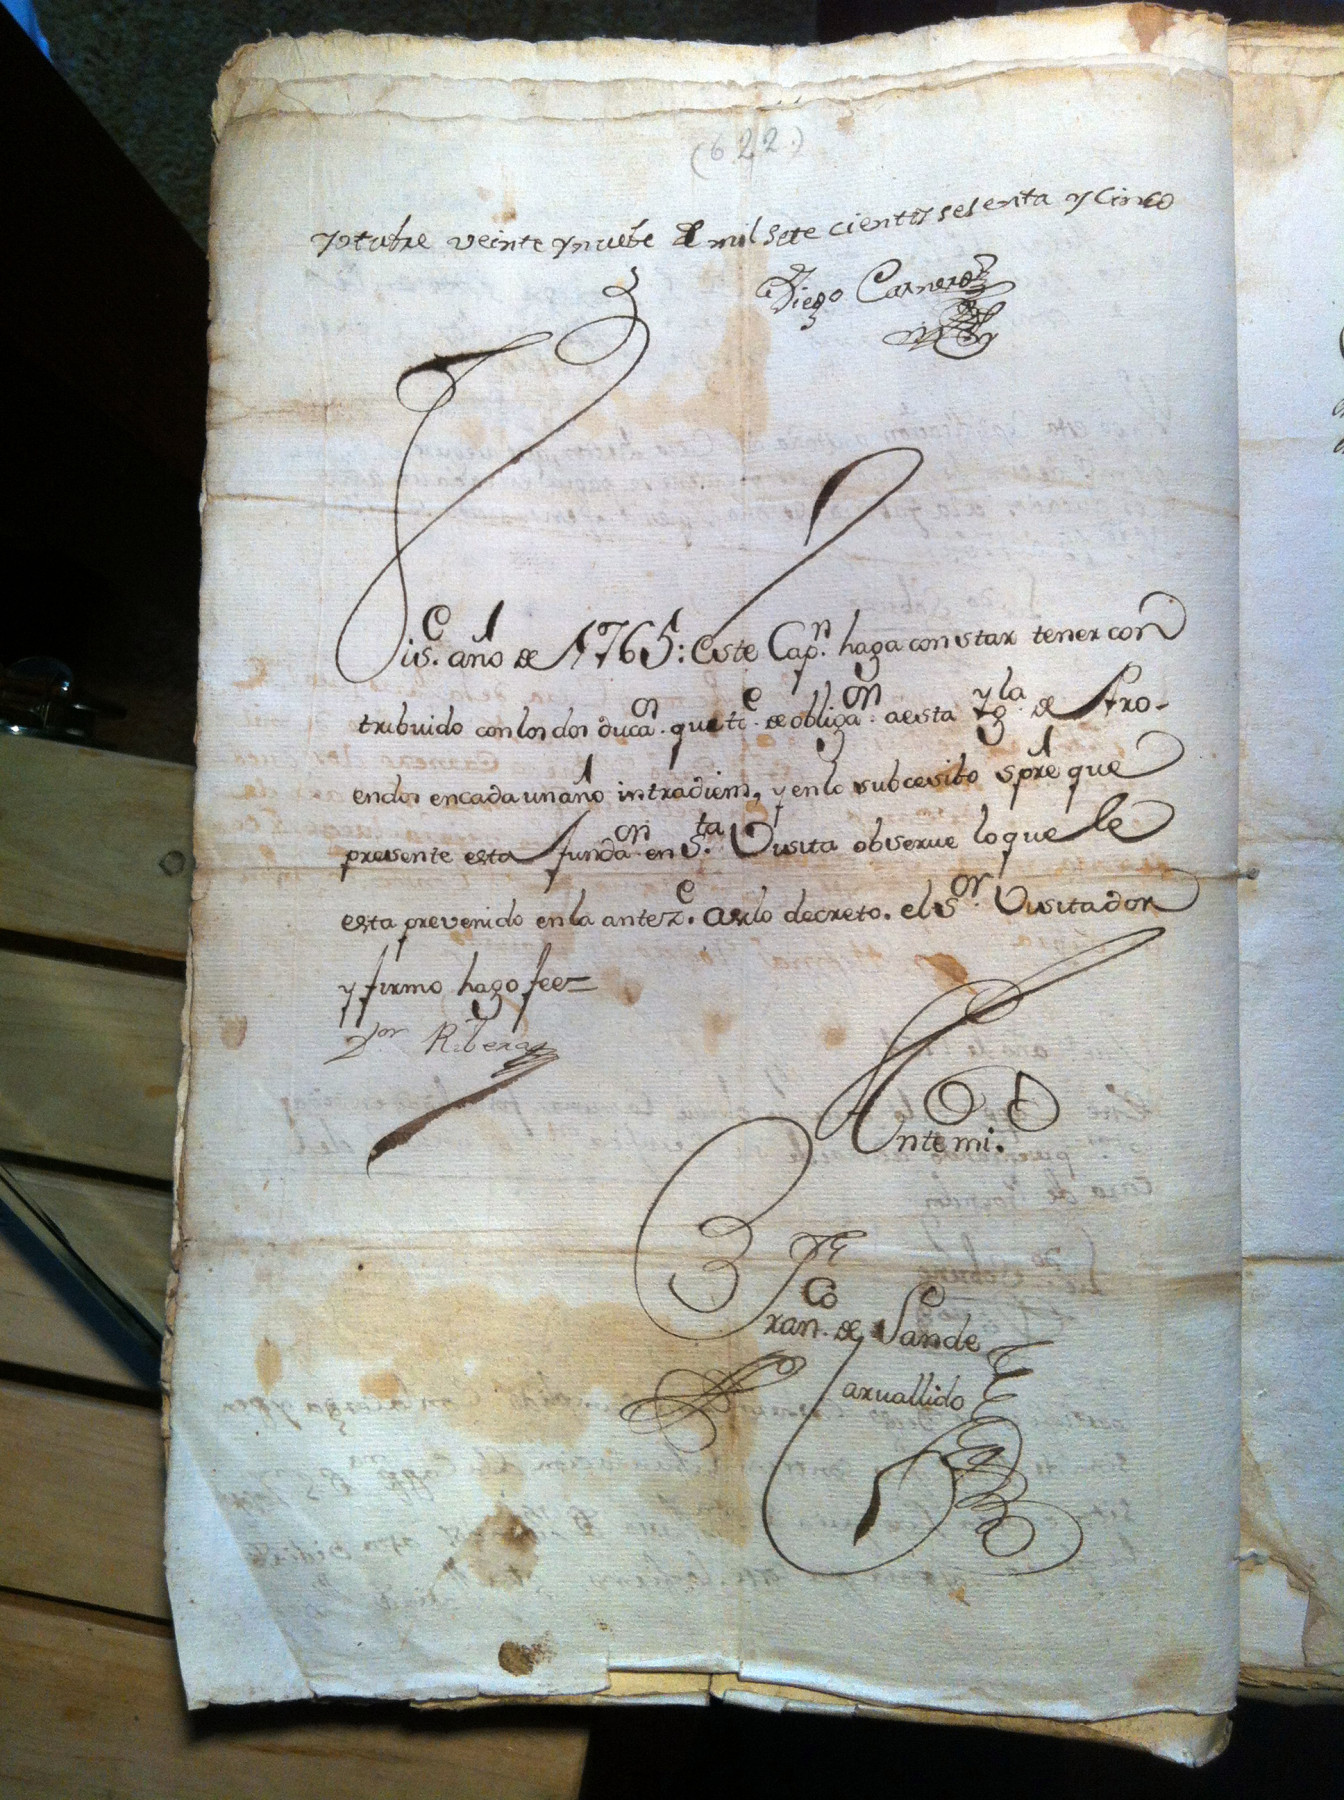 (622)
yotubre veinte y nuebe de mil sete cientos sesenta y cinco
Diego Carnero
Vis.e año de 1765: Este Cap.n haga constar tener con
tribuido con los dos duca.os que ti.e de obliga.on a esta Ygla. de Aro-
endos en cada un año intra diem, y en lo subcesibo spre que
presente esta funda.on en S.ta Visita observe lo que le
esta prevenido en la antez.e asilo decreto. el S.or Visitador
y firmo hago fee=
D.or Ribera
Ante mi.
Fran.co de Sande
Carvallido